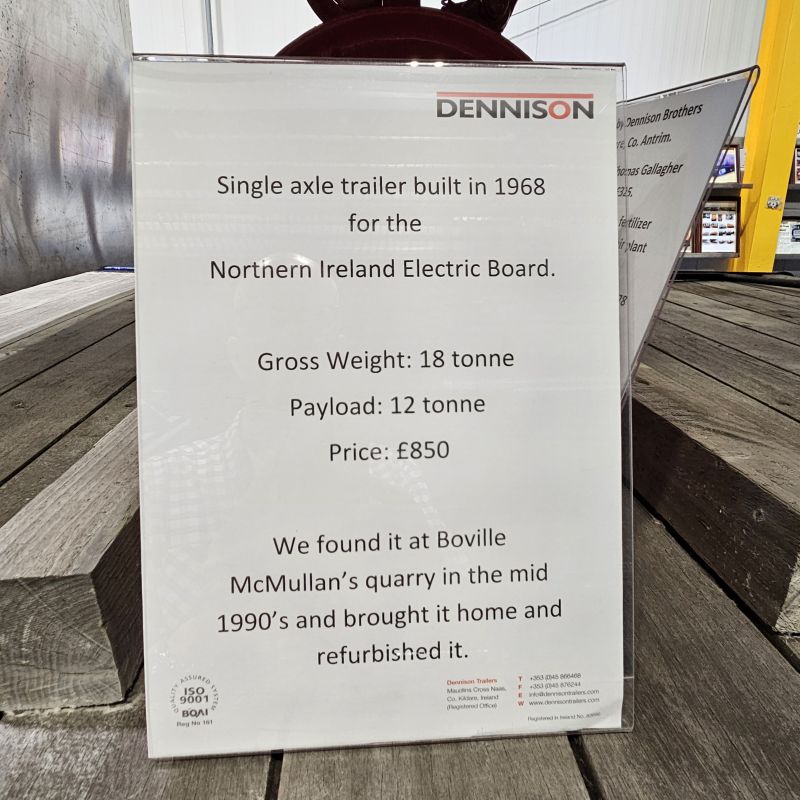 DENNISON
Single axle trailer built in 1968
for the
Northern Ireland Electric Board.
Gross Weight: 18 tonne
Payload: 12 tonne
Price: £850
We found it at Boville
McMullan's quarry in the mid
1990's and brought it home and
refurbished it.
QUALITY ASSURED SYSTEM
ISO
9001
BQAI
Reg No 161
Dennison Trailers
Maudlins Cross Naas,
Co. Kildare, Ireland
(Registered Office)
T +353 (0)45 866468
F +353 (0)45 876244
E info@dennisontrailers.com
W www.dennisontrailers.com
Registered in Ireland No.
by Dennison Brothers
Co. Antrim.
Gallagher
£325,
fertilizer
plant